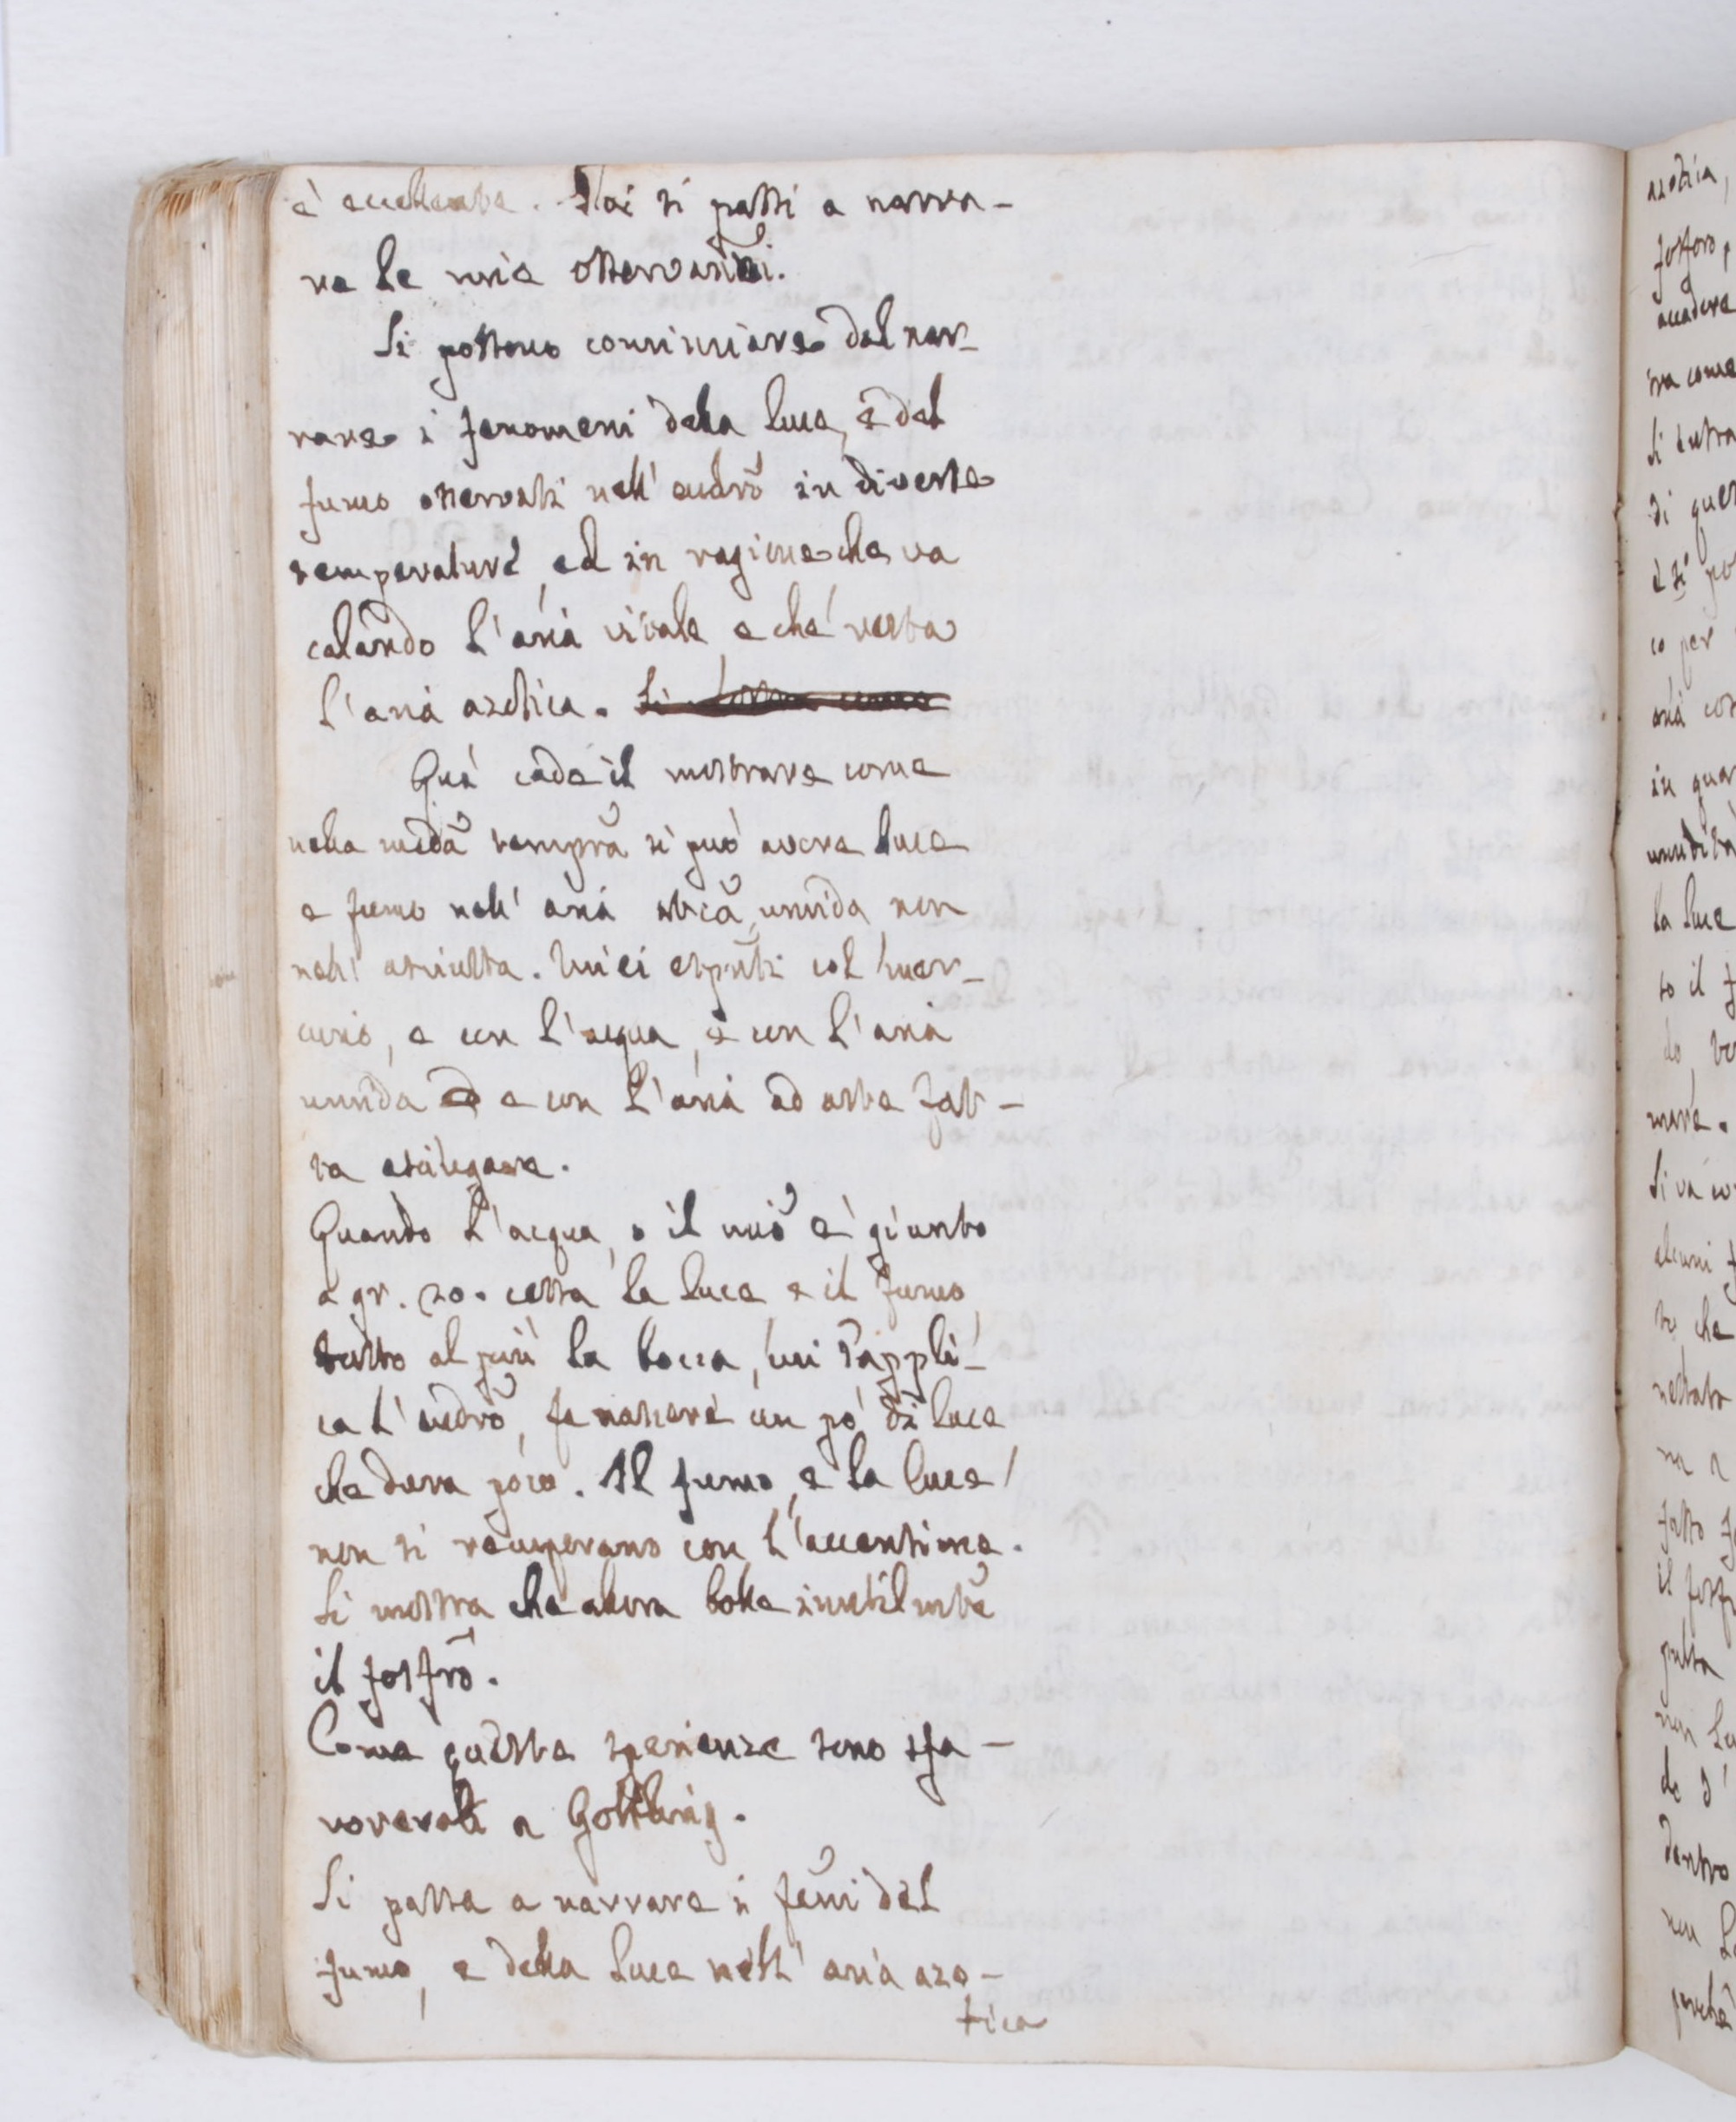 è eccellente. Poi si passi a narra-
re le mie osservazioni.
Si possono cominciare dal nar-
rare i fenomeni della luce, e del
fumo osservati nell' eudrõ in diverse
temperature, ed in ragione che va
calando l'aria vitale e che resta
l'aria azotica. Si
Quà cade il mostrare come
nella medã temprã si può avere luce
e fumo nell' aria atcã, umida, non
nell' asciutta. Miei espti col mer-
curio, e con l'acqua, e con l'aria
umida e con l'aria ad arte fat-
ta asciugare.
Quando l'acqua, o il mriõ è giunto
a gr. 20. cessa la luce e il fumo
tutto al più la bocca, cui s'appli-
ca l' eudrõ, fe nascere un pò di luce
che dura poco. Il fumo, e la luce
non si recuperano con l'accensione.
Si mostra che allora bolle inutilmtẽ
il fosfrõ.
Come queste sperienze sono sfa-
vorevoli a Gottling.
Si passa a narrare i feñi del
fumo, e della luce nell' aria azo-
tica
azotica,
fosforo,
accadere
tra come
Si tutta
di quel
e si
co per
aria con
in quar
umidità
la luce
to il f
do,
mere.
Si va co
alcuni f
to che
restata
na a
fatto f
il fosfr
non
de d'
dentro
non
perchè